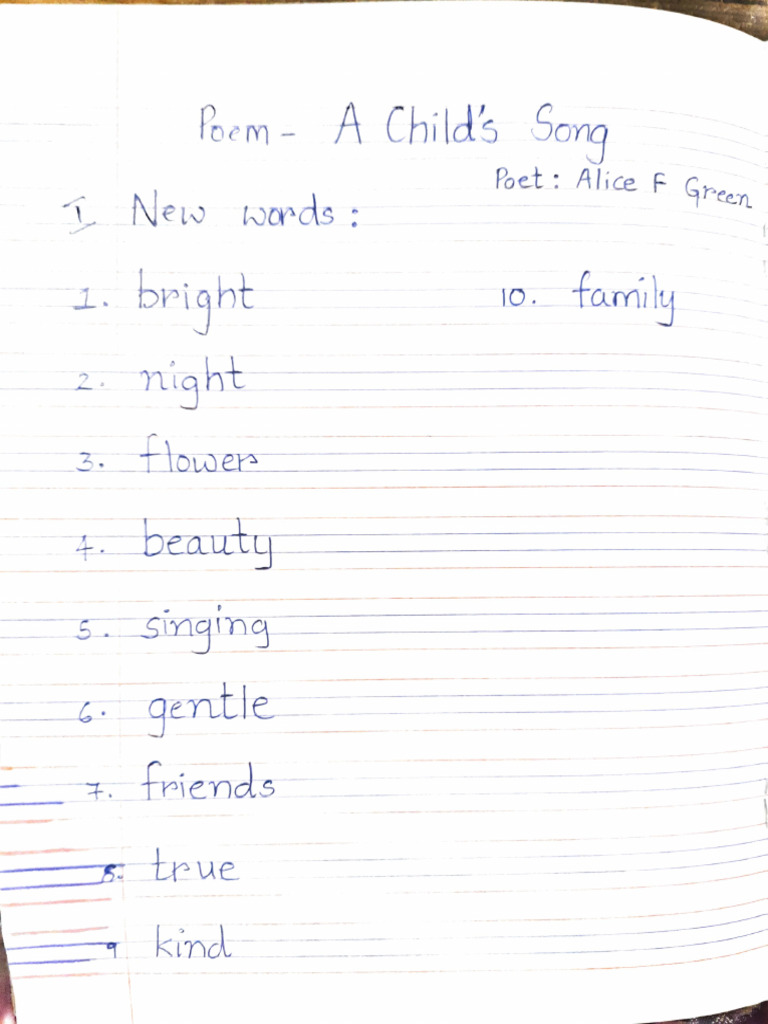 Poem - A Child's Song
Poet: Alice F Green
I New words:
1. bright
10. family
2. night
3. flowers
4. beauty
5. singing
6. gentle
7. friends
8. true
9 kind